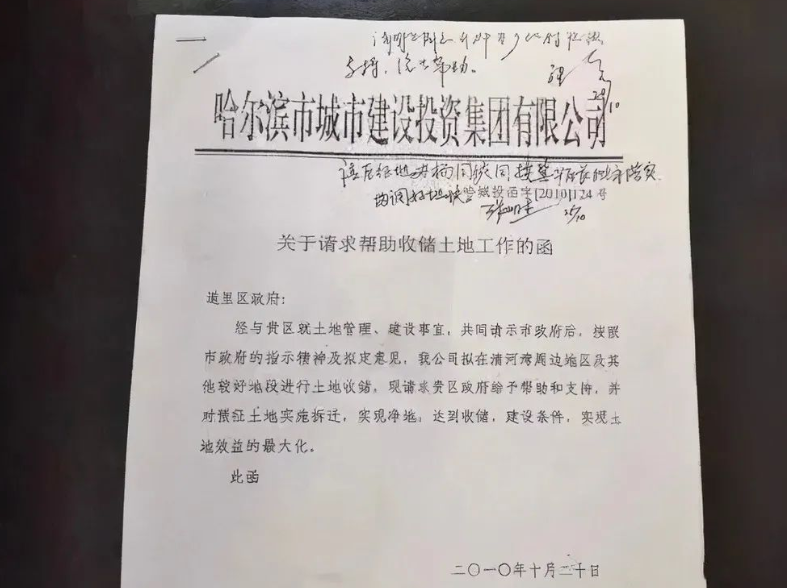 支持、给予帮助。
哈尔滨市城市建设投资集团有限公司
哈城投函字[2010]124号
25/10
关于请求帮助收储土地工作的函
道里区政府：
经与贵区就土地管理、建设事宜，共同请示市政府后，按照
市政府的指示精神及拟定意见，我公司拟在清河湾周边地区及其
他较好地段进行土地收储，现请求贵区政府给予帮助和支持，并
对预征土地实施拆迁，实现净地，达到收储，建设条件，实现土
地效益的最大化。
此函
二〇一〇年十月二十日